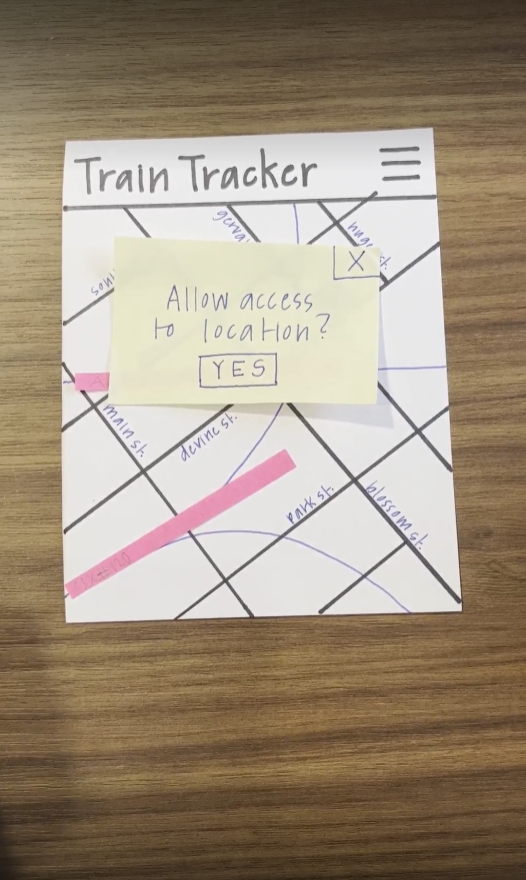 Train Tracker
X
Allow access
to location?
YES
main st.
devine st.
park st.
blossom st.